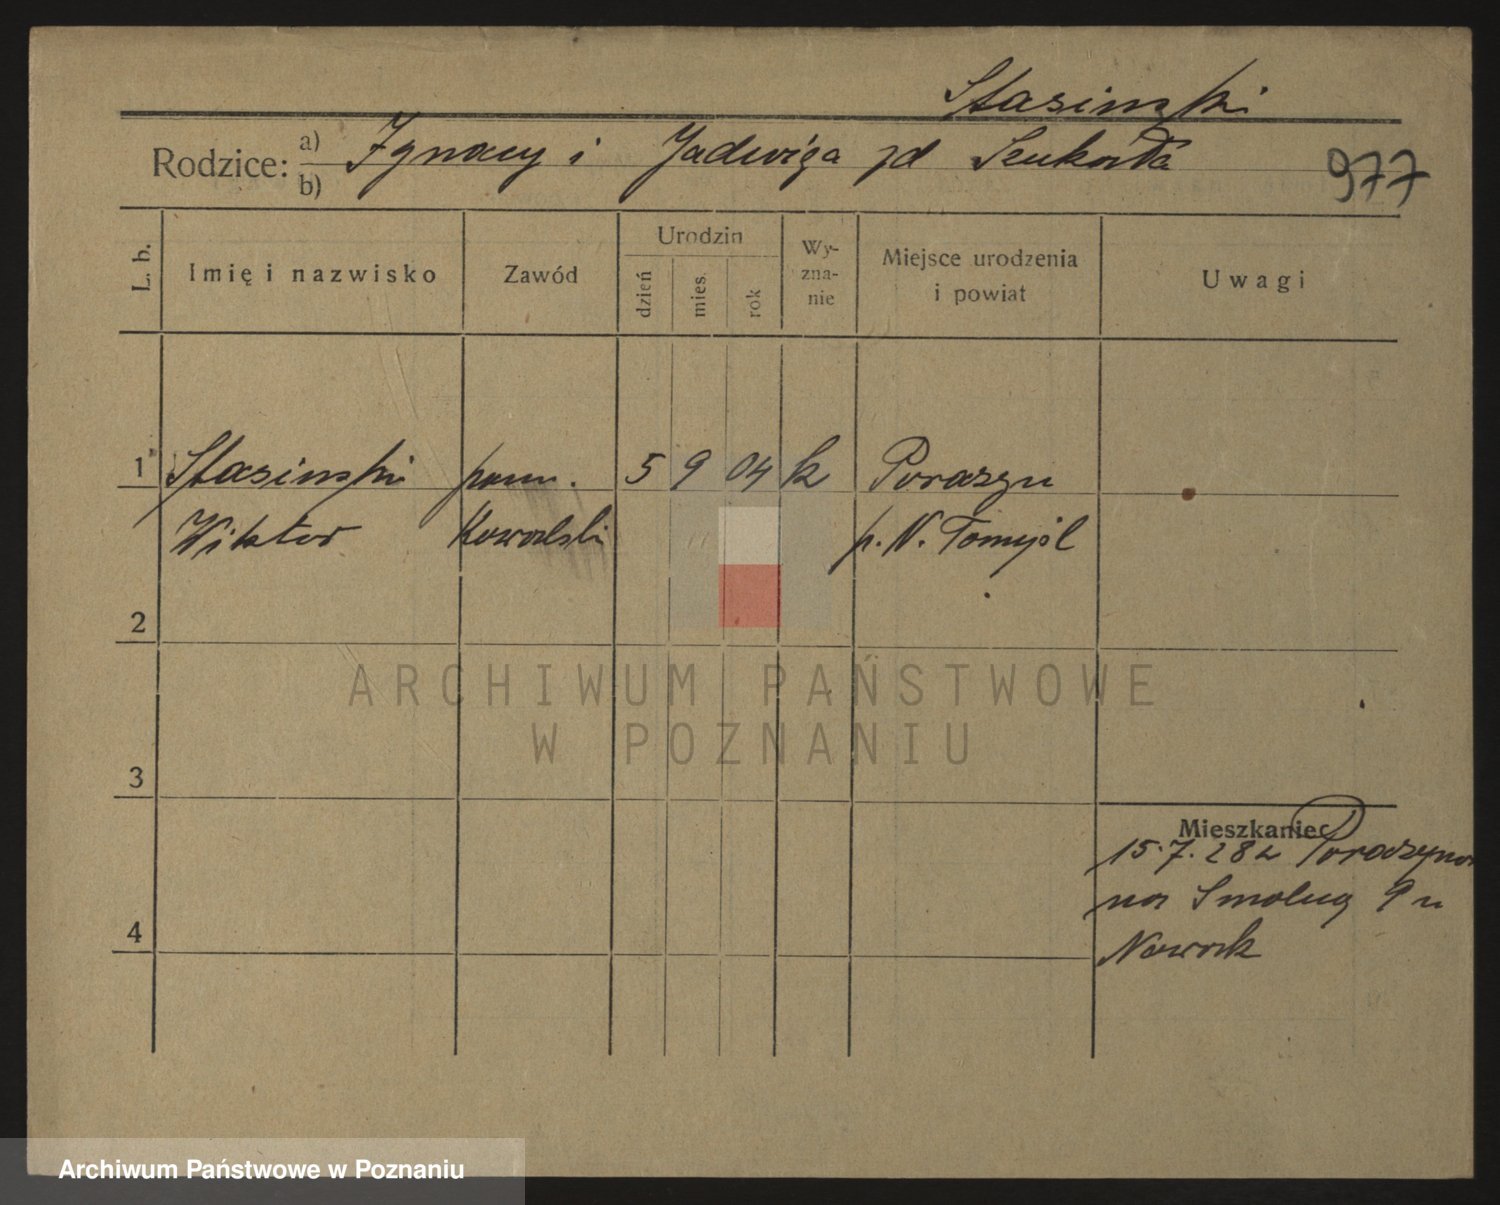 Stasinski
Rodzice: a) Ignacy i Jadwiga zd
b)
977
L. b.
Imię i nazwisko
Zawód
Urodzin
dzień
mies.
rok
Wy-
zna-
nie
Miejsce urodzenia
i powiat
Uwagi
1 Stasinski pom. 5 9 04 k Porazyn
Wiktor Kowalski p. N. Tomyśl
2
ARCHIWUM PAŃSTWOWE
W POZNANIU
3
Mieszkaniec
15.7.28 z Porazyna
na Smolną 9 u
4
Nowak
Archiwum Państwowe w Poznaniu